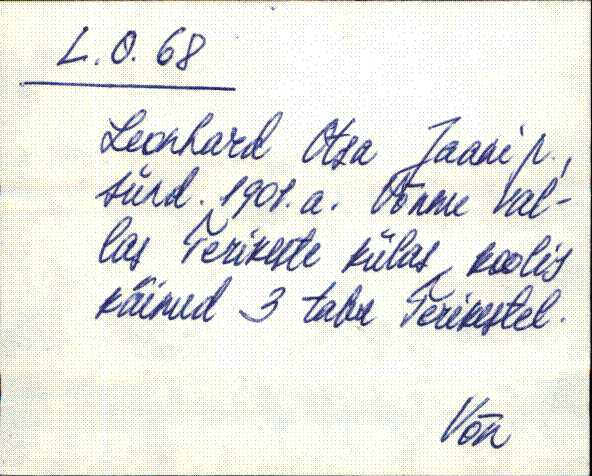 L. O. 68
Leonhard Otsa Jaani p.,
sünd. 1901. a. Võnnu val-
las Terikeste külas, koolis
käinud 3 talve Terikestel.
Võn